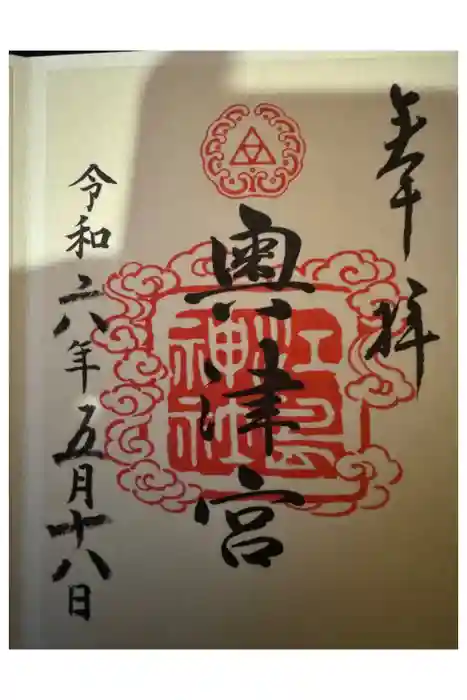 奉拝
奥津宮
江島
神社
令和六年五月十八日